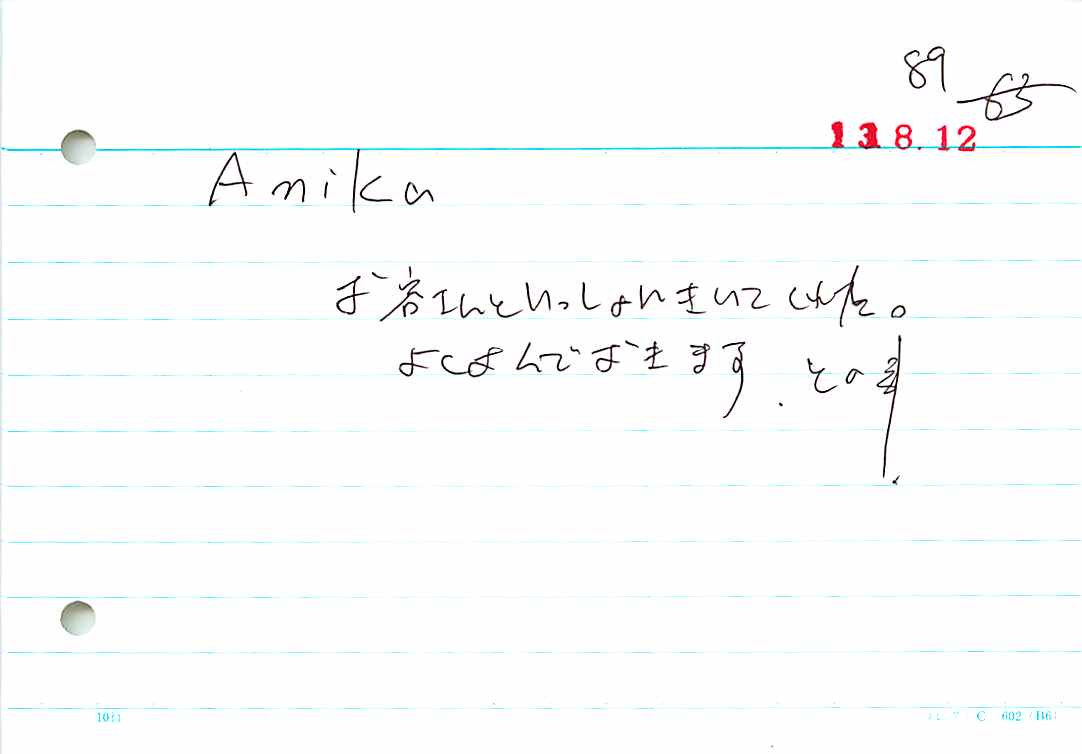 89 63
13 8.12
Anika
お客さんといっしょにきいてくれた。
よくよんでおきます. その
10行
C 602 (B6)